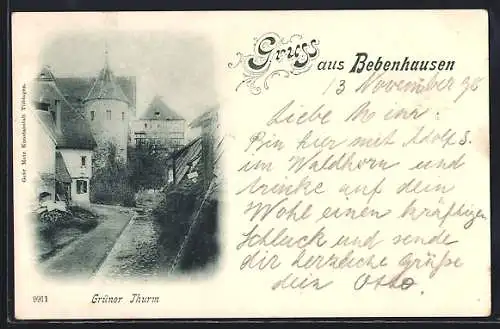 Gruss aus Bebenhausen
13 November 98
Liebe
Bin hier mit Adolf S.
im Waldhorn und
trinke auf dein
Wohl einen kräftigen
Schluck und sende
dir herzliche Grüße
dein Otto.
Gebr. Metz Kunstanstalt Tübingen.
9911
Grüner Thurm